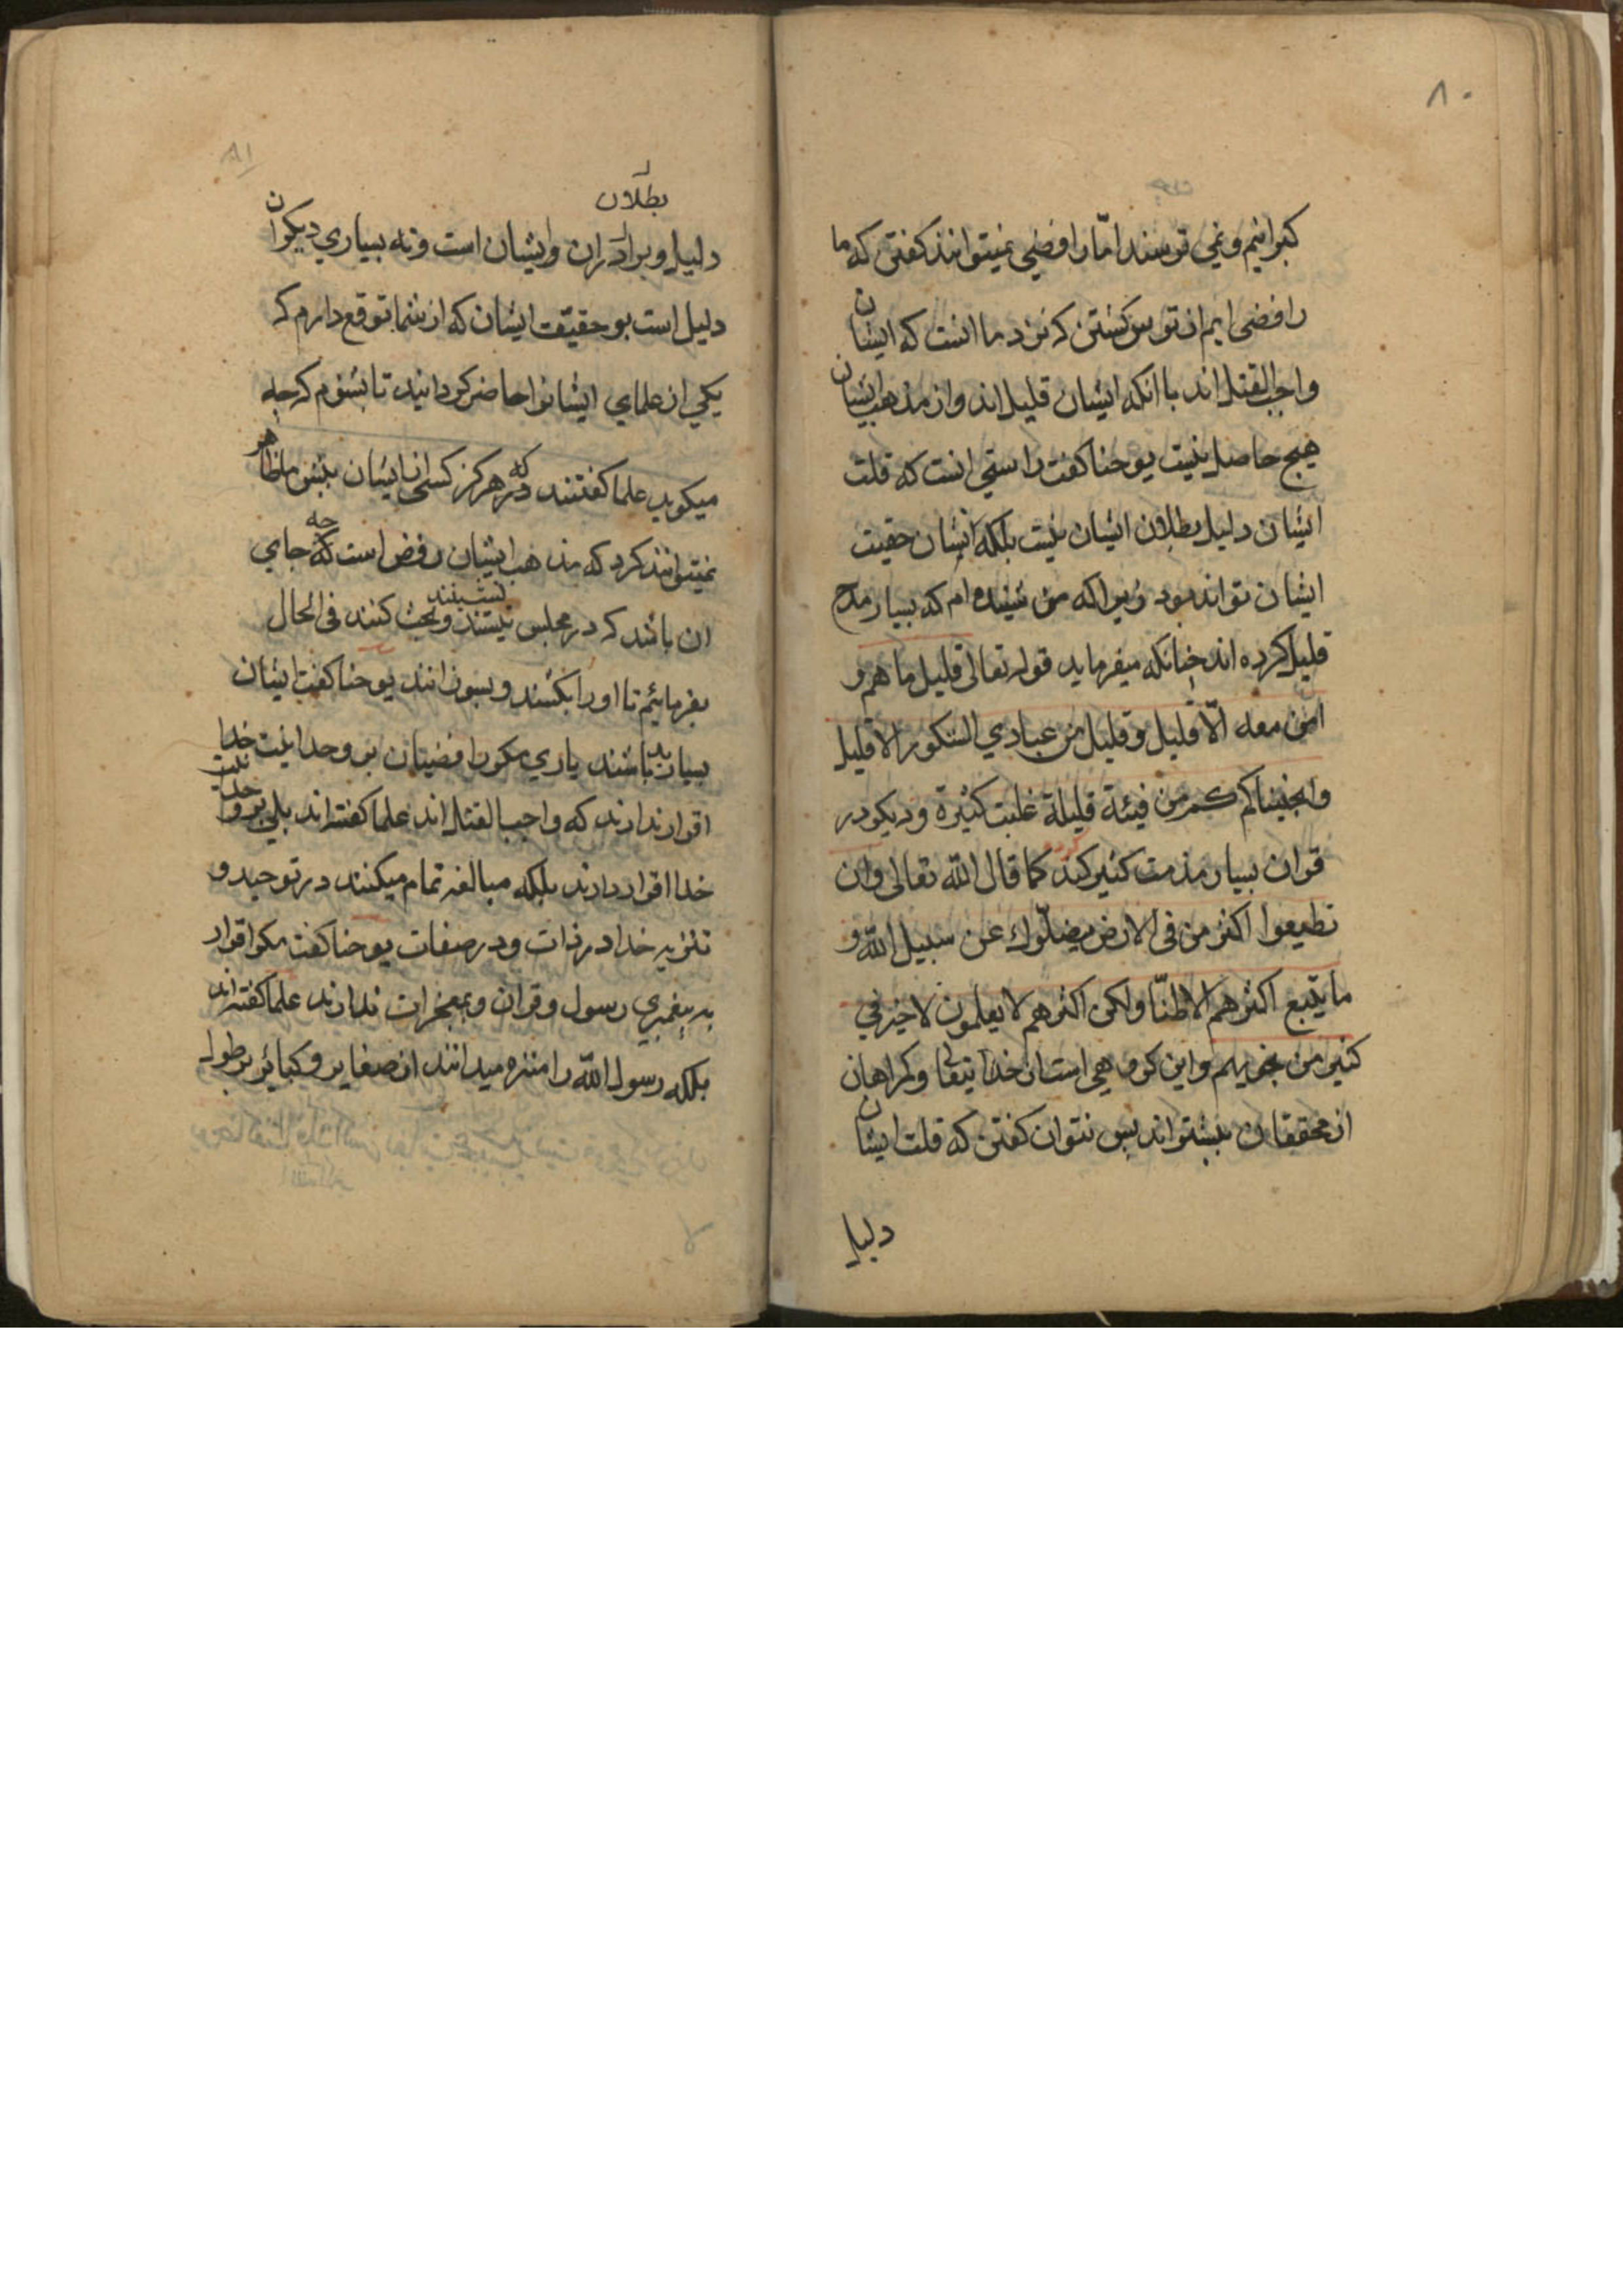 ٨٠
كبرانیم و نمی ترسند امّا رافضی نمیتوانند كفتن كه ما
رافضی ایم از ترس كشتن كه نزد ما انست كه ایشان
واجب القتل اند با انكه ایشان قلیل اند و از مذهب ایشان
هیچ حاصل نیست یوحنا كفت راستی انست كه قلت
ایشان دلیل بطلان ایشان نیست بلكه ایشان حقیت
ایشان تواند بود زیرا كه من شنیده ام كه بسیار مدح
قلیل كرده اند چنانكه میفرماید قوله تعالی قلیل ما هم و
امن معه الّا قلیل و قلیل من عبادي الشكور الا قلیل
وانجیناكم كم من فیئة قلیلة غلبت كثیرة و دیكر در
قران بسیار مذمت كثیر كند كرده كما قال الله تعالی وان
تطیعوا اكثر من فی الارض یضلّوك عن سبیل الله و
ما یتبع اكثرهم الا ظنّا ولكن اكثرهم لا یعلمون لا خیر في
كثیر من نجویهم و این كروهی است از خدایتعالی و كمراهان
از محققان بیشتراند پس نتوان كفتن كه قلت ایشان
دلیل
٨١
بطلان
دلیل و برادران وایشان است ونه بسیاري دیكران
دلیل است بر حقیقت ایشان كه از شما توقع دارم كه
یكي از علماي ایشانرا حاضر كردانید تا بشنوم كه چه
میكوید علما كفتند كه در هركز كسی از ایشان پیش ما ظاهر
نمیتوانند كرد كه مذهب ایشان رفض است كه چه جاي
ان باشد كه در مجلس نیستند نشینند و بحث كنند فی الحال
بفرمائیم تا اورا بكشند و بسوزانند یوحنا كفت ایشان
بسیار بد باشند یاري مكر رافضیان بر وحدانیت خدا
اقرار ندارند كه واجب القتل اند علما كفته اند بلي بر وحدانیت
خدا اقرار دارند بلكه مبالغه تمام میكنند در توحید و
تنزیه خدا در ذات و در صفات یوحنا كفت مكر اقرار
به پیغمبري رسول و قران و بمعجزات ندارند علما كفته اند
بلكه رسول الله را منزه میدانند از صغایر و كبائر بر طول